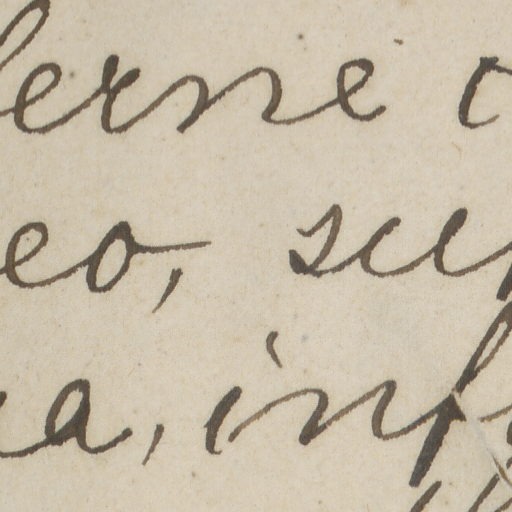 erne
eo, sup
a, inf